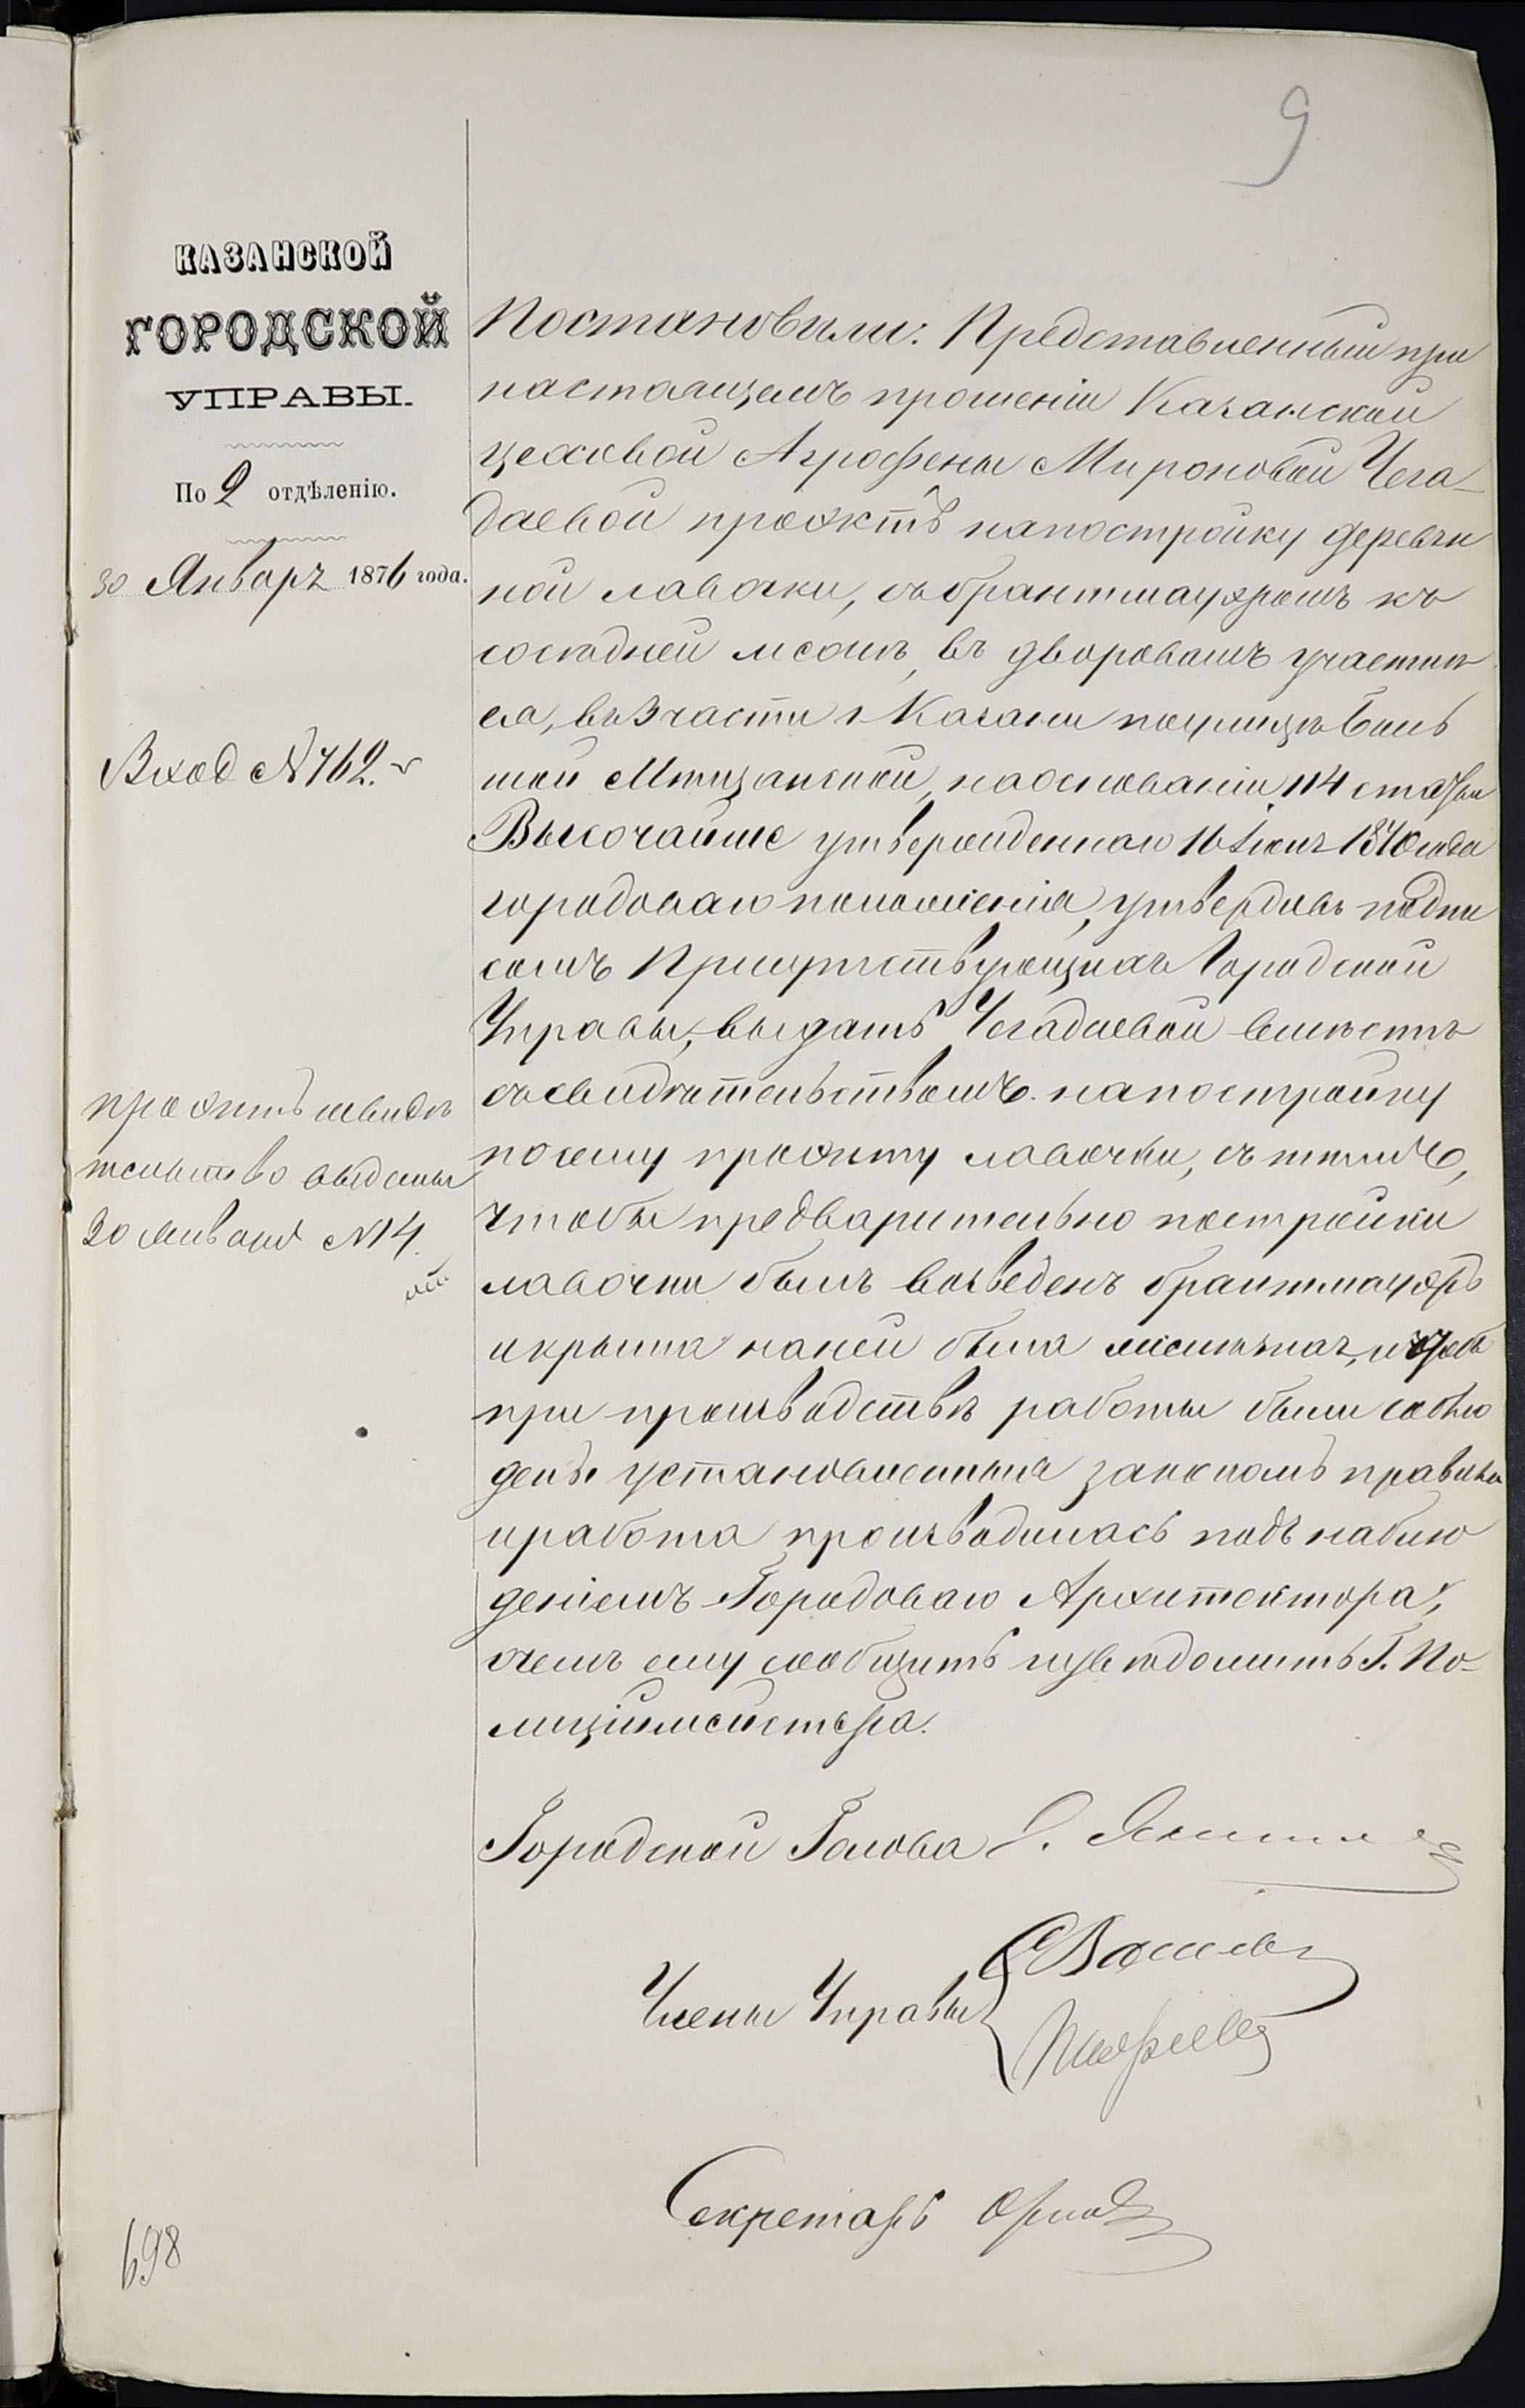 9
КАЗАНСКОЙ
ГОРОДСКОЙ
УПРАВЫ.
По 2 отдѣленію.
30 Января 1876 года.
Вход №762.
проэктъ и свидѣ
тельство выданы
30 января №14.
Постановили: Представленный при
настоящемъ прошеніи Казанской
цеховой Агрофены Мироновой Чега-
даевой проэктъ на постройку деревян
ной лавочки, съ брантмауэромъ къ
сосѣдней межѣ, въ дворовомъ участкѣ
ея, въ 3 части г. Казани по улицѣ Боль
шой Мещанской, на основаніи 114 статьи
Высочайше утвержденнаго 16 Іюня 1870 года
городоваго положенія, утвердивъ подпи
сомъ Присутствующихъ Городской
Управы, выдать Чегадаевой вмѣстѣ
съ свидѣтельствомъ на постройку
по сему проэкту лавочки, съ тѣмъ,
чтобы предварительно постройки
лавочки былъ возведенъ брантмауэръ
и крыша на ней была желѣзная, и чтобы
при производствѣ работы были соблю
дены установленныя закономъ правила
и работа производилась подъ наблю
деніемъ Городоваго Архитектора,
о чемъ ему сообщить и увѣдомить Г. По-
лиціймейстера.
Городской Голова
Члены Управы
Секретарь
698